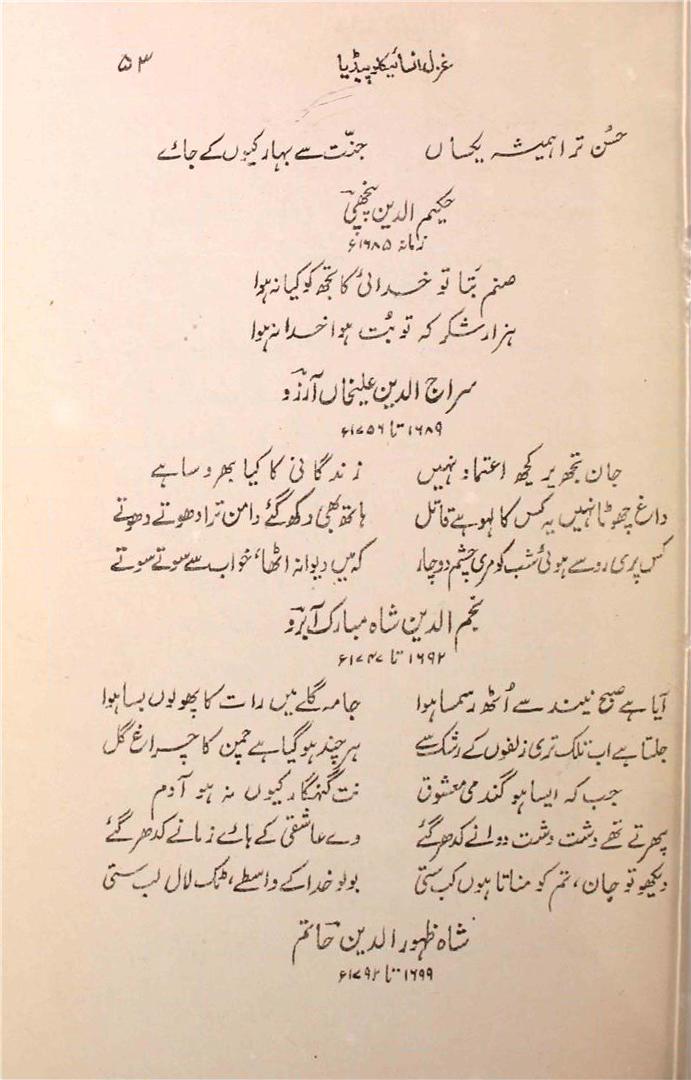 غزل انسائیکلوپیڈیا ۵۳
حُسن ترا ہمیشہ یکساں جنّت سے بہار کیوں کے جائے
حکیم الدین پنچھی
زمانہ ۱۶۸۵ء
صنم بَتا تو خدائی کا تجھ کو کیا نہ ہوا
ہزار شکر کہ تو بُت ہوا خدا نہ ہوا
سراج الدین علیخاں آرزو
۱۶۸۹ تا ۱۷۵۶ء
جان تجھ پر کچھ اعتماد نہیں زندگانی کا کیا بھروسا ہے
داغ چھوٹا نہیں یہ کس کا لہو ہے قاتل ہاتھ بھی دکھ گئے دامن ترا دھوتے دھوتے
کس پری رو سے ہوئی شب کو مری چشم دوچار کہ میں دیوانہ اٹھا، خواب سے سوتے سوتے
نجم الدین شاہ مبارک آبرو
۱۶۹۲ تا ۱۷۴۷ء
آیا ہے صبح نیند سے اُٹھ رسمسا ہوا جامہ گلے میں رات کا پھولوں بسا ہوا
جلتا ہے اب تلک تری زلفوں کے رشک سے ہر چند ہو گیا ہے چمن کا چراغ گل
جب کہ ایسا ہو گندمی معشوق نت گنہگار کیوں نہ ہو آدم
پھرتے تھے دشت دشت دوانے کدھر گئے وے عاشقی کے ہائے زمانے کدھر گئے
دیکھو تو جان، تم کو مناتا ہوں کب ستی بولو خدا کے واسطے، ٹک لال لب ستی
شاہ ظہور الدین حاتم
۱۶۹۹ تا ۱۷۹۲ء